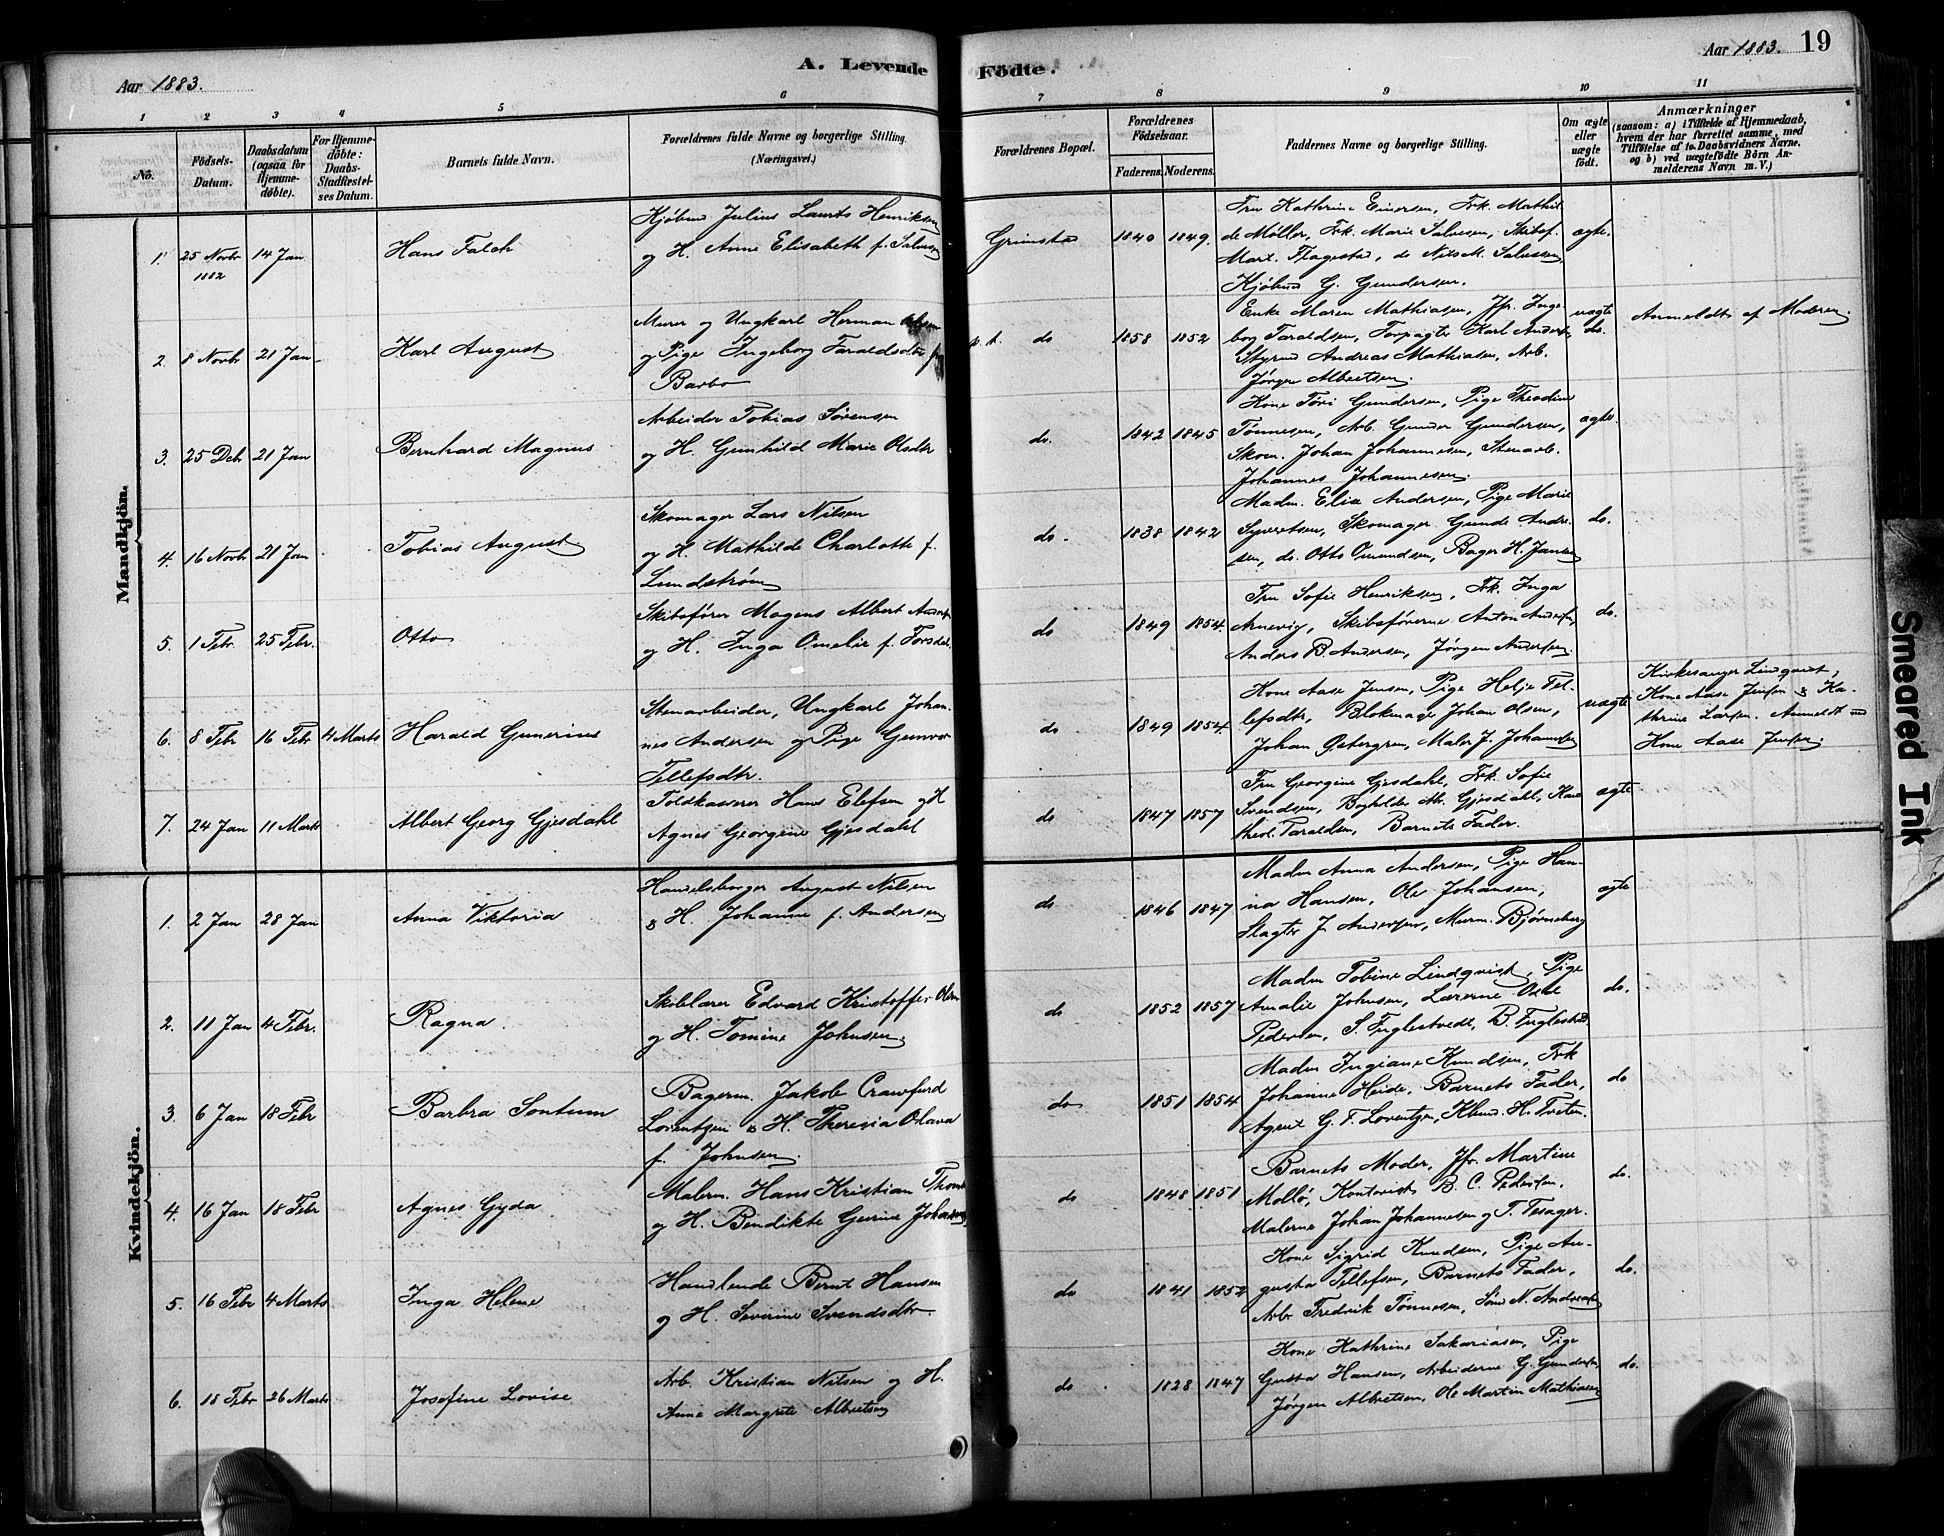 Aar 1883.
A. Levende Födte.
Aar 1883. 19
1 2 3 4 5 6 7 8 9 10 11
No.
Födsels-Datum.
Daabsdatum (ogsaa for Hjemmedöbte).
For Hjemmedöbte: Daabs-Stadfæstelses Datum.
Barnets fulde Navn.
Forældrenes fulde Navne og borgerlige Stilling.
(Næringsvei.)
Forældrenes Bopæl.
Forældrenes Födselsaar.
Faderens. Moderens.
Faddernes Navne og borgerlige Stilling.
Om ægte eller uægte födt.
Anmærkninger
(saasom: a) i Tilfælde af Hjemmedaab,
hvem der har forrettet samme, med
Tilföielse af to Daabsvidners Navne,
og b) ved uægtefödte Börn Anmelderens Navn m. V.)
Mandkjön.
1. 25 Novbr 1882 14 Jan Hans Falch
Kjöbmd Julius Laurits Henriksen
og H. Anne Elisabeth f. Salvesen
Grimstad 1840 1849.
Fru Kathrine Einersen, Frk. Mathil
de Møller, Frk. Marie Salvesen, Skibsf.
Mart. Fragestad, do Nils M. Salvesen,
Kjöbmd G. Gundersen.
ægte.
2. 8 Novbr 21 Jan Karl August
Murer og Ungkarl Herman Olsen
og Pige Ingeborg Taraldsdtr
Barbo
p. t. do 1858 1852
Enke Maren Mathiasen, Jfr. Inge
borg Taraldsen, Forpagter Karl Anders.
Styrmd Andreas Mathiasen, Arb.
Jørgen Albretsen.
uægte do.
Anmeldt af Moderen.
3. 25 Deb 21 Jan Bernhard Magnus
Arbeider Tobias Sørensen
og H. Gunhild Marie Olsdtr
do. 1842 1845
Kone Tori Gundersen, Pige Theodine
Tønnesen, Arb. Gunder Gundersen,
Skom. Johan Johannesen, Stenarb.
Johannes Johannesen.
ægte.
4. 16 Novbr 21 Jan Tobias August
Skomager Lars Nilsen
og H. Mathilde Charlotte f.
Lundstrøm
do. 1838 1842
Madm. Elise Andersen, Pige Marie
Syvertsen, Skomager Gunde Andre
sen, do. Otto Omundsen, Bager H. Jansen
do.
5. 1 Febr 25 Febr. Otto
Skibsfører Mogens Albert Andersen
og H. Inga Omelie f.
do 1849 1854.
Fru Sofie Henriksen, Frk. Inga
Arnevig, Skibsførerne Anton Andersen,
Anders B. Andersen, Jørgen Andersen.
do.
6. 8 Febr 16 Febr 4 Marts Harald Gunerius
Stenarbeider, Ungkarl Johan
nes Andersen og Pige Gunvor
Tellefsdtr.
do 1849 1854.
Kone Aase Jensen, Pige Helje Tel
lefsdtr, Blokmager Johan Olsen,
Johan Østergren, Maler J. Johannesen
uægte
Kirkesanger Lindqvist,
Kone Aase Jensen & Ka
thrine Larsen. Anmeldt ved
Kone Aase Jensen.
7. 24 Jan 11 Marts Albert Georg Gjesdahl
Toldkasserer Hans Elefsen og H
Agnes Georgine Gjesdahl
do 1847 1857
Fru Georgine Gjesdahl, Frk. Sofie
Svendsen, Bogholder Gjesdahl, Kand
theol. Taraldsen, Barnets Fader.
ægte
Kvindekjön.
1. 2 Jan 28 Jan Anna Viktoria
Handelsborger August Nilsen
& H. Johanne f. Andersen
do 1846 1847
Madm Anna Andersen, Pige Han-
na Hansen, Ole Johansen,
Slagter J. Andersen, Murm. Bjørneberg
ægte
2. 11 Jan 4 Febr. Ragna.
Skolelærer Edvard Kristoffer Olsen
og H. Tomine Johnsen,
do 1852 1857
Madm Tobine Lindqvist, Pige
Amalie Johnsen, Lærerne Osvl
Pedersen, S. Fuglestvedt, B. Fuglestvd.
do.
3. 6 Jan 18 Febr Barbra Sontum
Bagerm. Jakob Crawfurd
Lorentzen & H. Theresia Olava
f. Johnsen.
do 1851 1854
Madm Ingiane Knudsen, Frk
Johanne Heide, Barnets Fader,
Agent G. F. Lorentzen, Kbmd. H. Tveten.
do
4. 16 Jan 18 Febr Agnes Gyda
Malerm. Hans Kristian Thom
og H. Bendikte Gurine Johansen
do 1848 1851
Barnets Moder, Jfr. Martine
Mollø, Kontorist B. C. Pedersen,
Malerne Johan Johannesen og T. Fesager.
do.
5. 16 Febr 4 Marts Inga Helene
Handlende Bernt Hansen
og H. Severine Svendsdtr.
do 1841 1852
Kone Sigrid Knudsen, Pige Au-
gusta Tellefsen, Barnets Fader,
Arb. Fredrik Tønnesen, Sømd N. Andreasen
do.
6. 18 Febr 26 Marts Josefine Lovise
Arb. Kristian Nilsen og H.
Anne Margrete Albretsen
do 1828 1847
Kone Kathrine Sakariasen, Pige
Gusta Hansen, Arbeiderne G. Gundersen,
Jørgen Albretsen, Ole Martin Mathiasen
do.
Smeared Ink